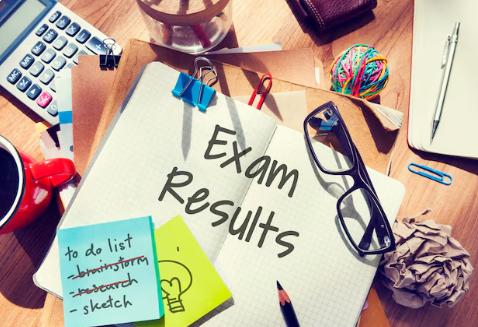 Exam
Results
to do list
- brainstorm
- research
- sketch